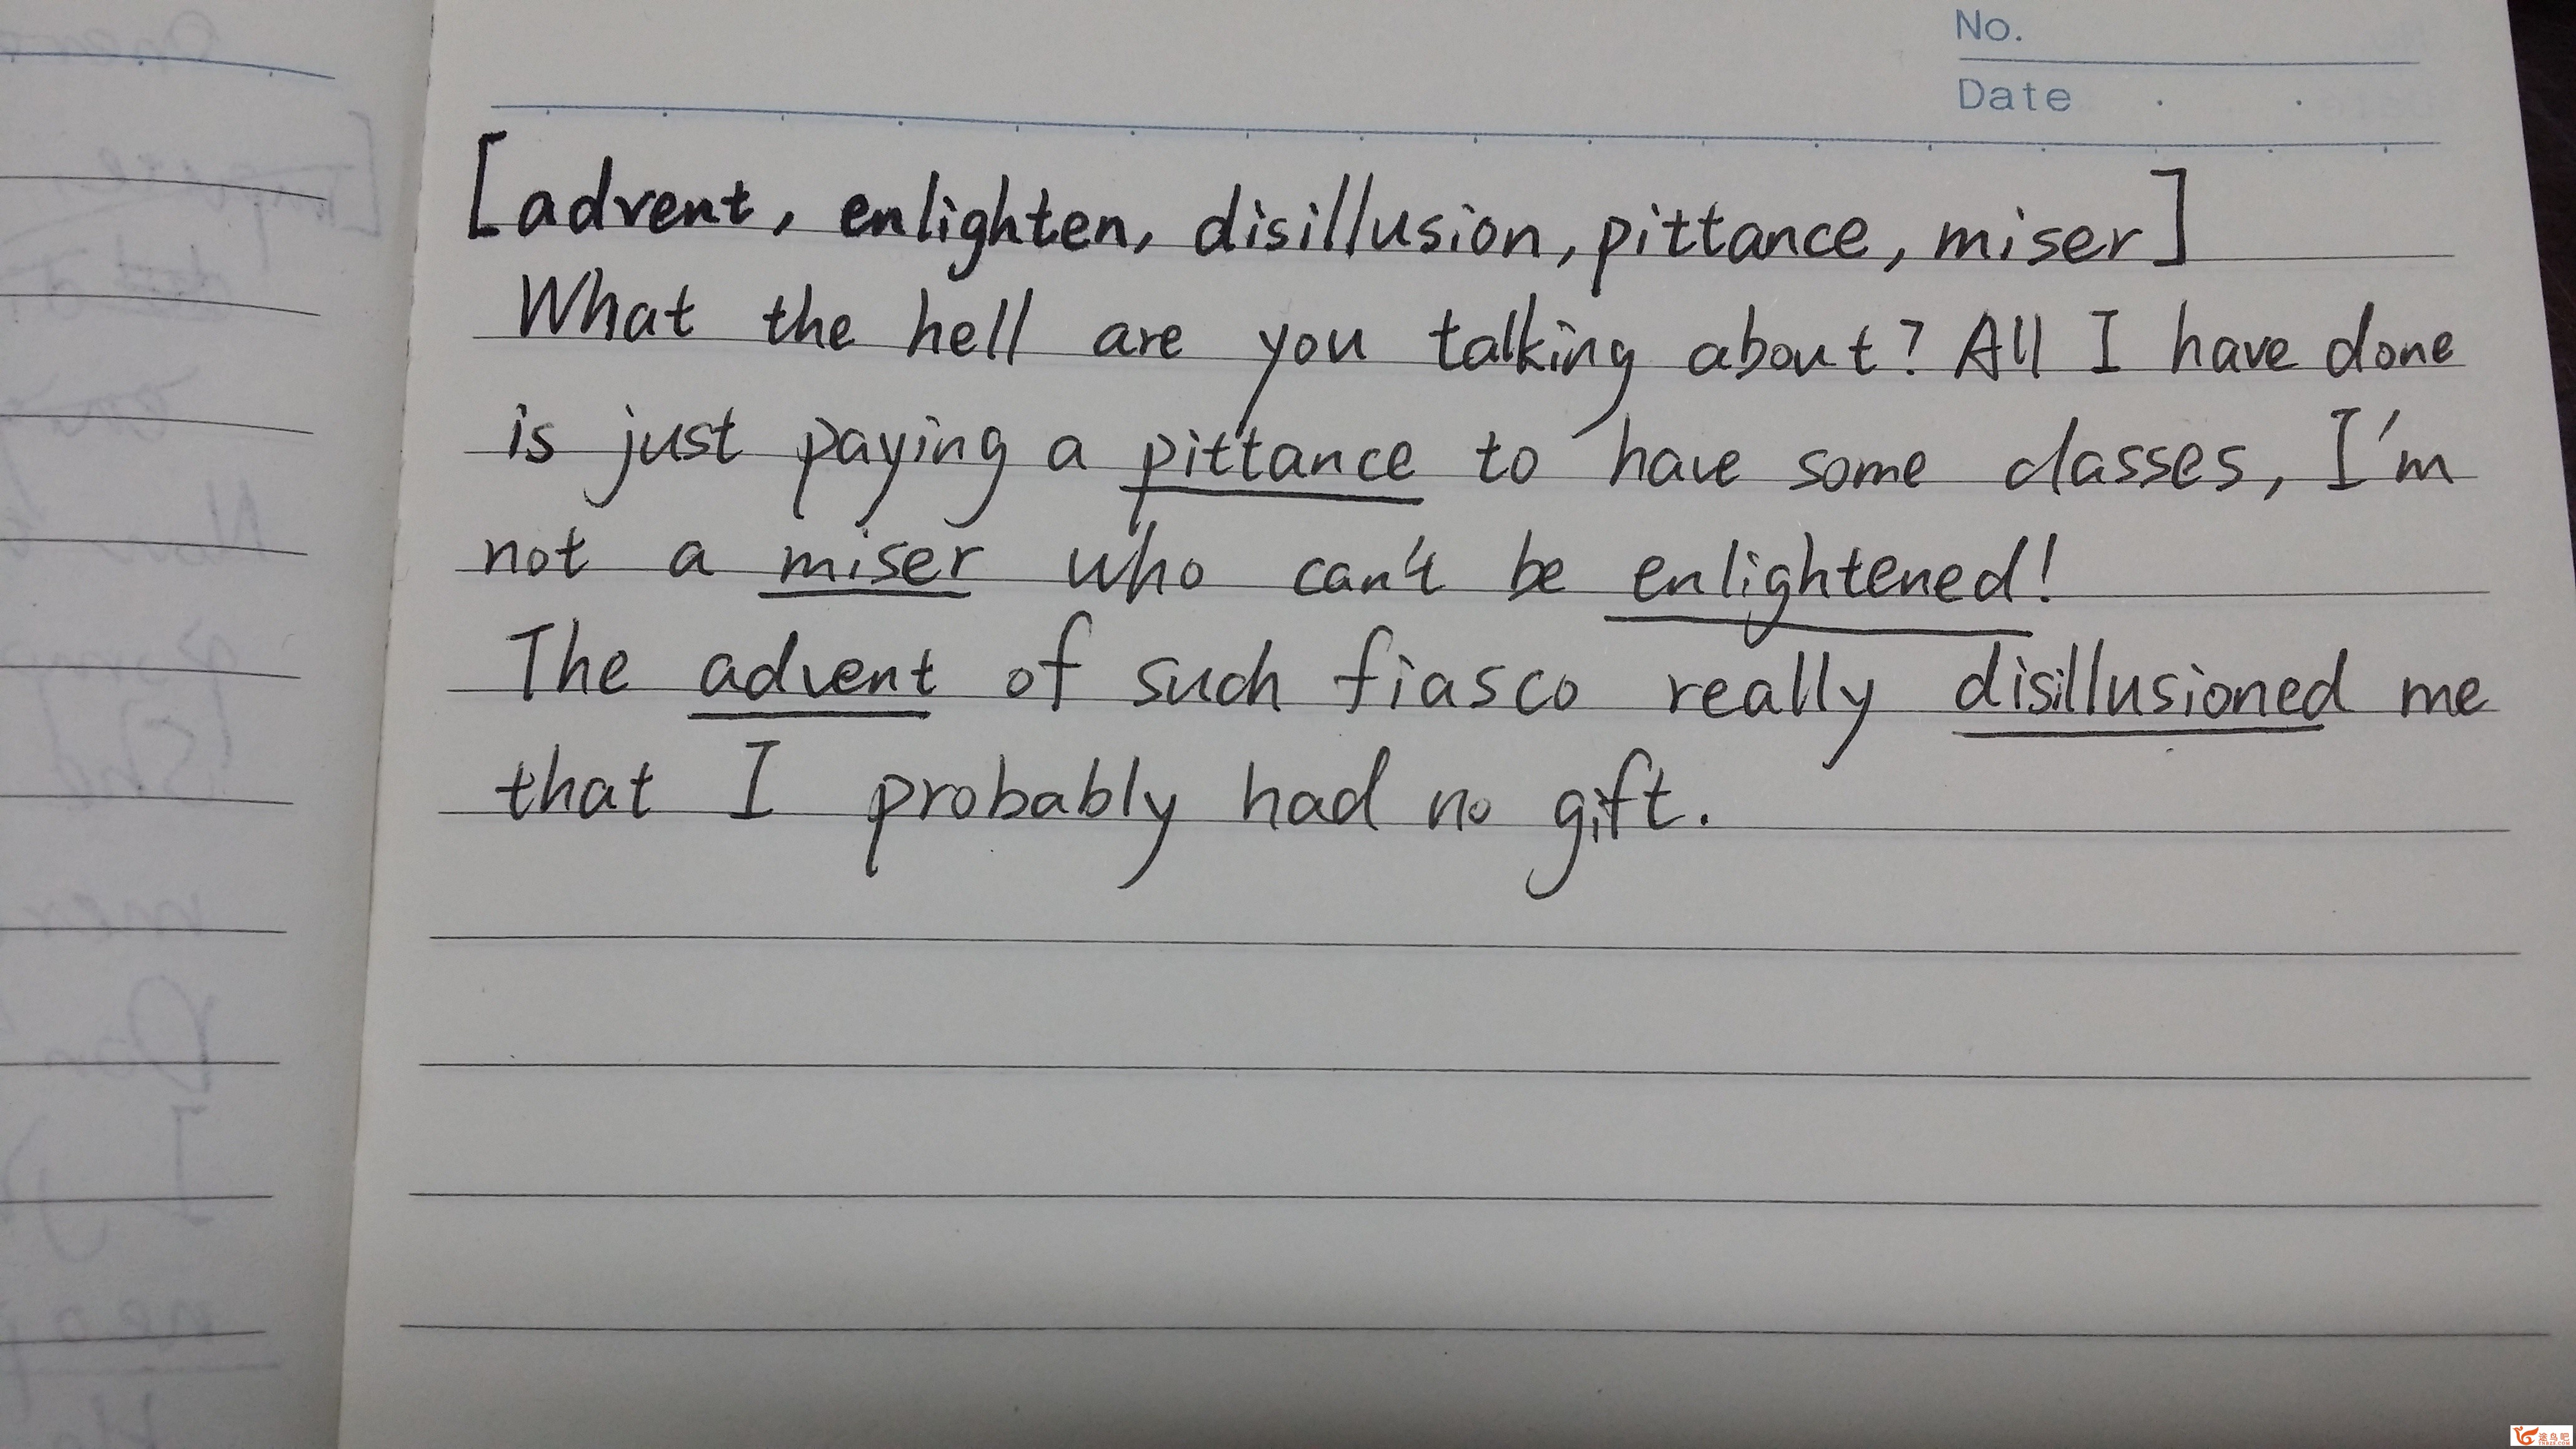 No.
Date
[advent, enlighten, disillusion, pittance, miser]
What the hell are you talking about? All I have done
is just paying a pittance to have some classes, I'm
not a miser who can't be enlightened!
The advent of such fiasco really disillusioned me
that I probably had no gift.
途鸟吧